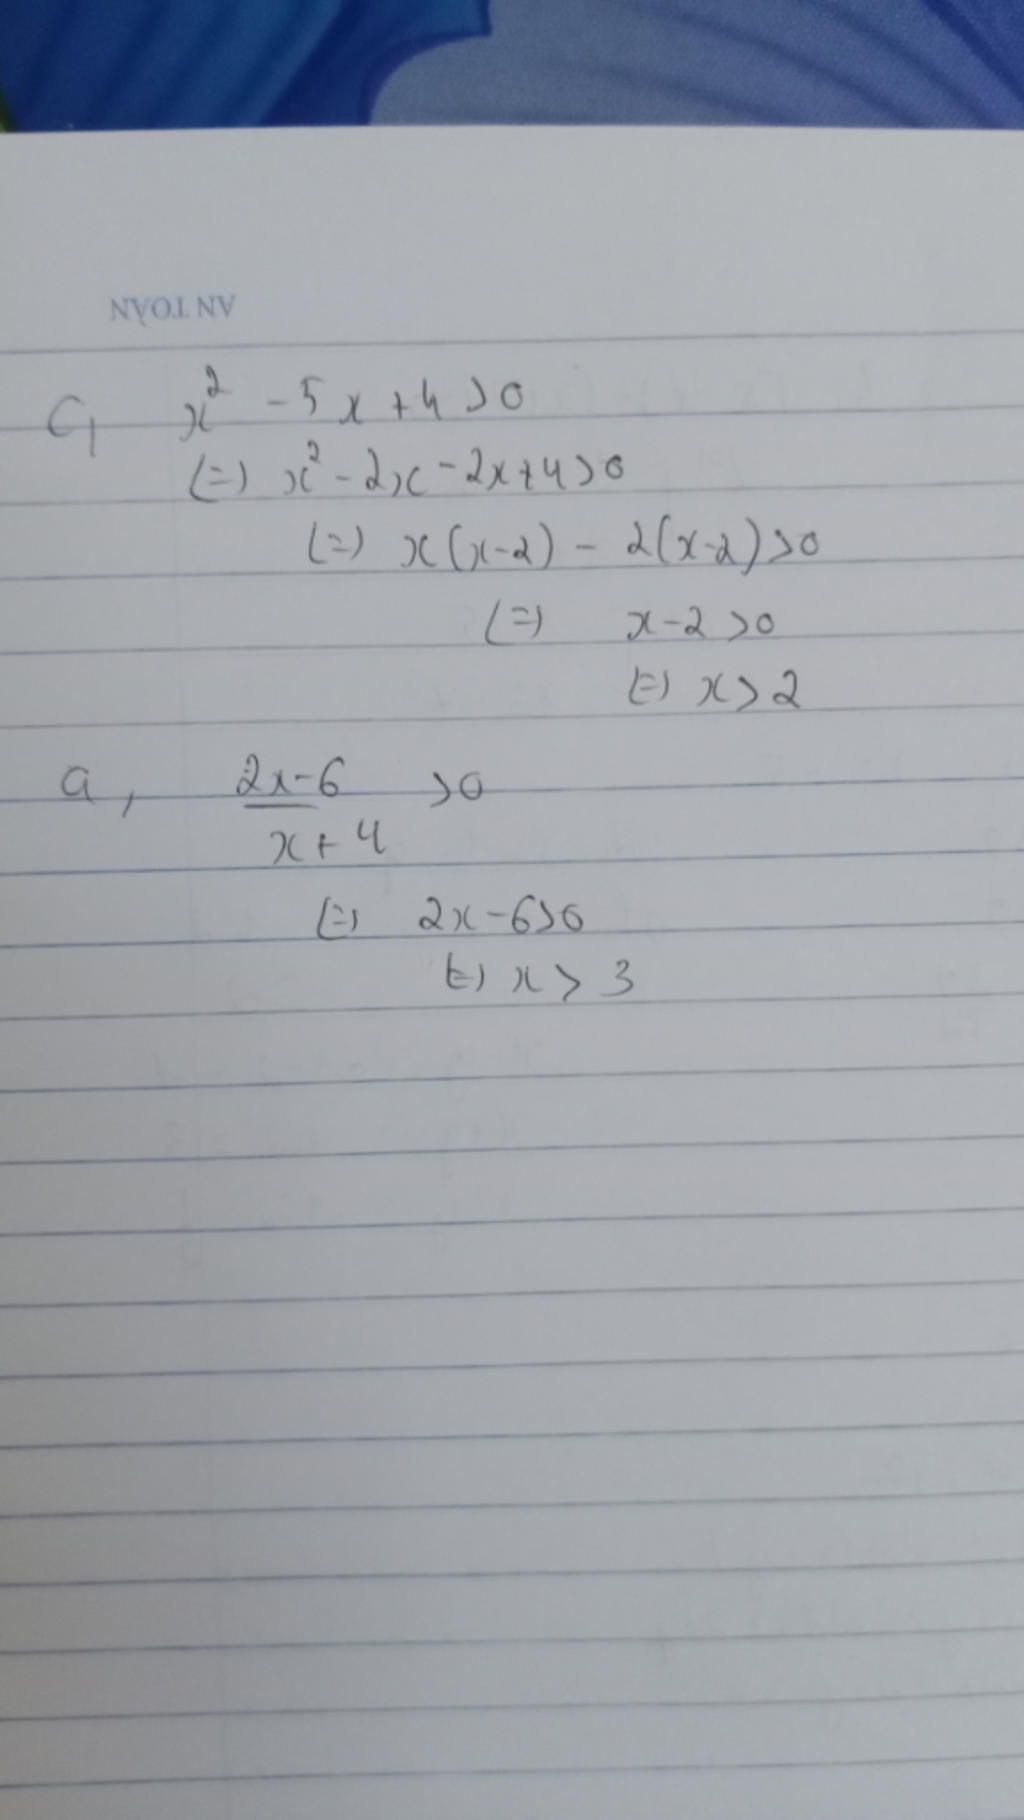 AN TOÀN
C, x² - 5x + 4 > 0
(=) x² - 2x - 2x + 4 > 0
(=) x(x-2) - 2(x-2) > 0
(=) x - 2 > 0
(=) x > 2
a, (2x-6)/(x+4) > 0
(=) 2x - 6 > 0
(=) x > 3